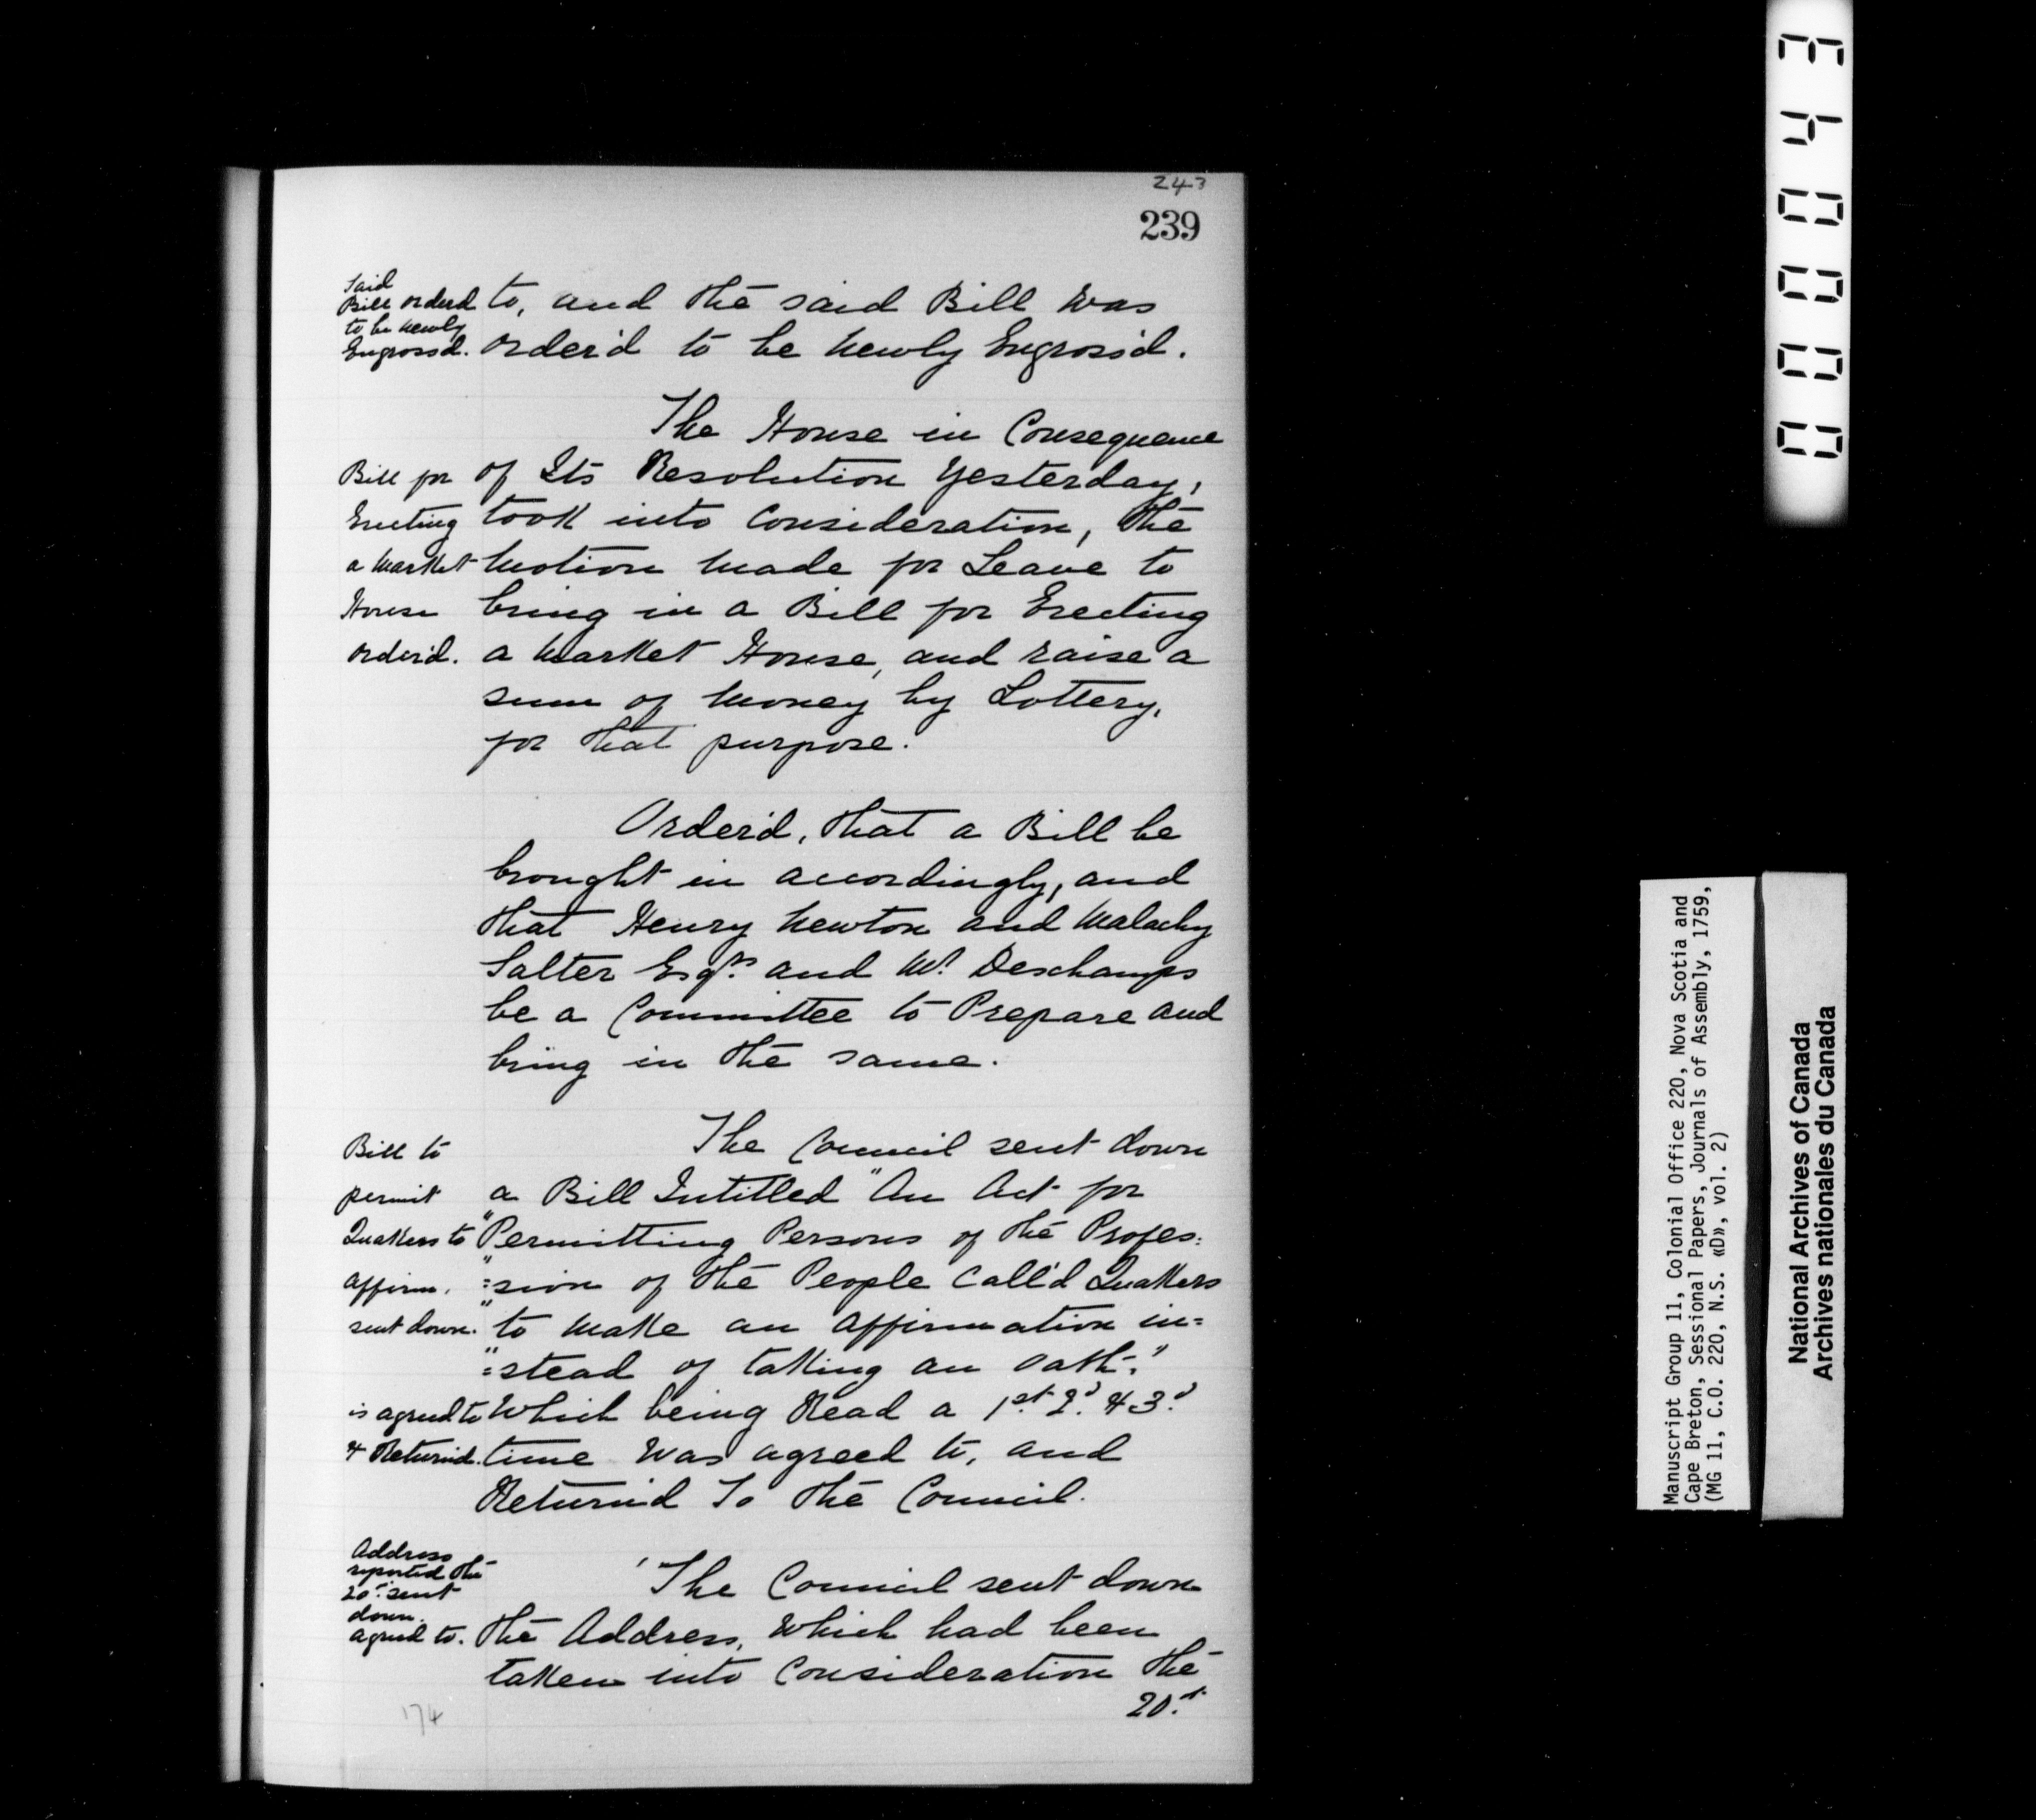 243
239
Said
Bill orderd
to be newly
Engross'd.
to, and the said Bill was
order'd to be newly Engross'd.
The House in Consequence
Bill for
Erecting
a Market
House
order'd.
of Its Resolution Yesterday,
took into Consideration, the
Motion made for Leave to
bring in a Bill for Erecting
a Market House, and raise a
sum of Money by Lottery,
for that purpose.
Order'd, that a Bill be
brought in accordingly, and
that Henry Newton and Malachy
Salter Esqrs. and Mr. Deschamps
be a Committee to Prepare and
bring in the same.
Bill to
permit
Quakers to
affirm,
sent down.
The Council sent down
a Bill Intitled "An Act for
"Permitting Persons of the Profes:
":sion of the People Call'd Quakers
"to make an Affirmation in=
":stead of taking an Oath."
is agreed to
& Return'd.
Which being Read a 1st. 2d. & 3d.
time was agreed to, and
Return'd To the Council.
Address
reported the
20th. sent
down.
agreed to.
The Council sent down
the Address, Which had been
taken into Consideration the
20th.
174
Manuscript Group 11, Colonial Office 220, Nova Scotia and
Cape Breton, Sessional Papers, Journals of Assembly, 1759,
(MG 11, C.O. 220, N.S. «D», vol. 2)
National Archives of Canada
Archives nationales du Canada